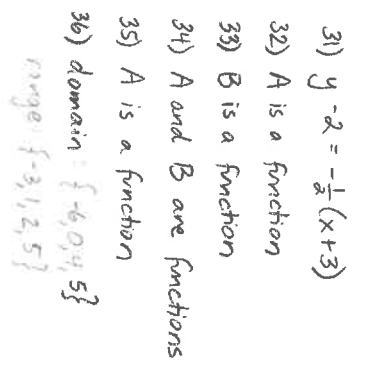 31) y - 2 = -1/2 (x + 3)
32) A is a function
33) B is a function
34) A and B are functions
35) A is a function
36) domain: {-6, 0, 4, 5}
range: {-3, 1, 2, 5}